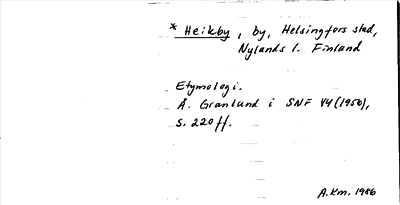 * Heikby, by, Helsingfors stad,
Nylands l. Finland
Etymologi.
Å. Granlund i SNF 44 (1956),
s. 220 ff.
A.Km. 1986